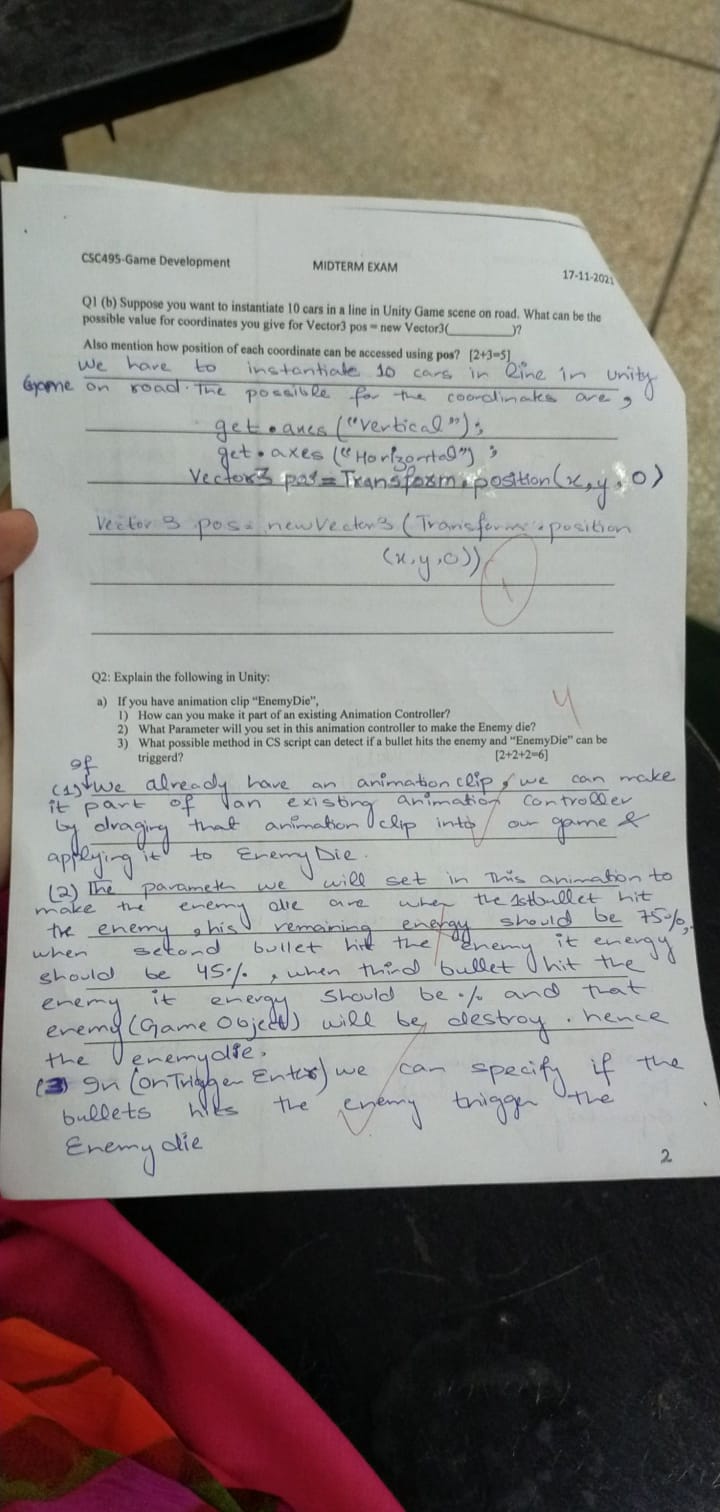 CSC495-Game Development MIDTERM EXAM 17-11-2021
Q1 (b) Suppose you want to instantiate 10 cars in a line in Unity Game scene on road. What can be the
possible value for coordinates you give for Vector3 pos = new Vector3(__________)?
Also mention how position of each coordinate can be accessed using pos? [2+3=5]
We have to instantiate 10 cars in line in unity
Game on road. The possible for the coordinates are,
get.axes ("vertical");
get.axes ("Horizontal");
Vector3 pos = Transform.position(x,y,0)
Vector 3 pos = new Vector3 (Transform.position
(x,y,0))
1
Q2: Explain the following in Unity:
4
a) If you have animation clip "EnemyDie",
1) How can you make it part of an existing Animation Controller?
2) What Parameter will you set in this animation controller to make the Enemy die?
3) What possible method in CS script can detect if a bullet hits the enemy and "EnemyDie" can be
triggerd? [2+2+2=6]
(1) If we already have an animation clip, we can make
it part of an existing animation controller
by draging that animation clip into our game &
applying it to EnemyDie.
(2) The parameter we will set in This animation to
make the enemy die are when the 1st bullet hit
the enemy, his remaining energy should be 75%,
when second bullet hit the enemy it energy
should be 45%, when third bullet hit the
enemy it energy should be .% and that
enemy (Game Object) will be destroy. hence
the enemy die.
(3) In (onTrigger Enter) we can specify if the
bullets hits the enemy trigger the
Enemy die
2